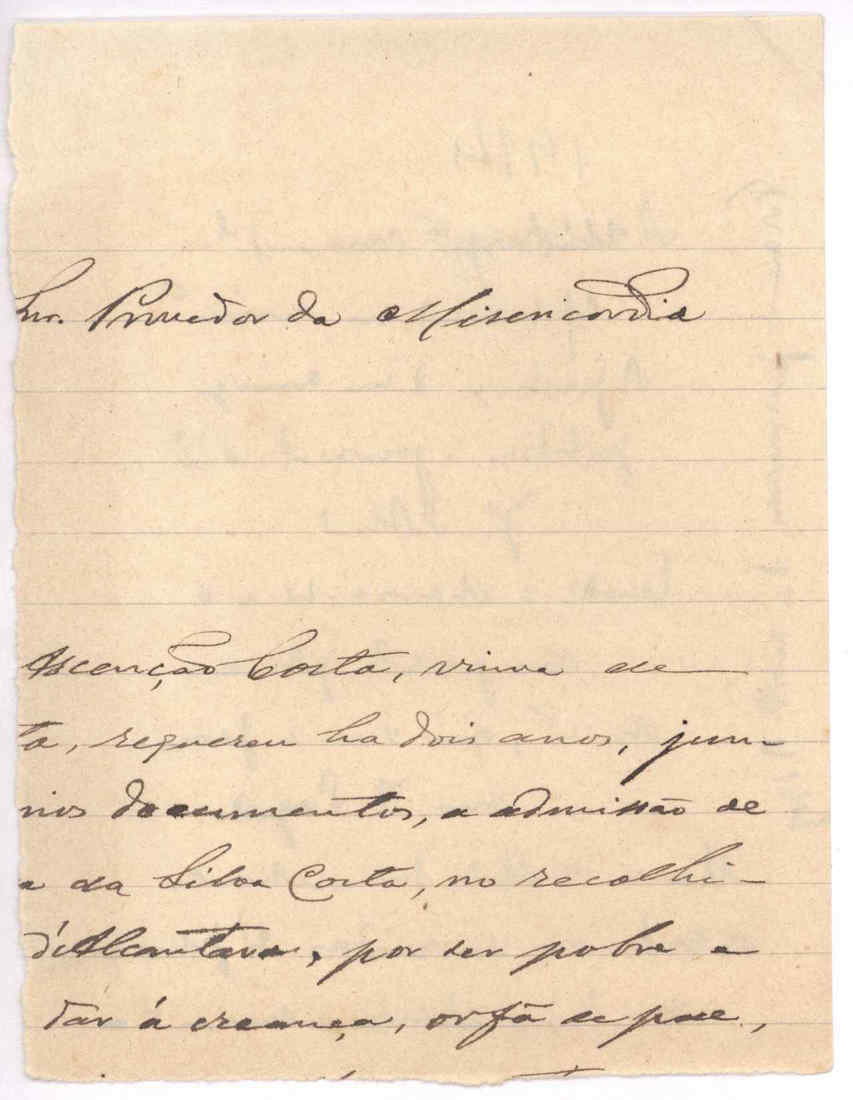 Snr. Provedor da Misericordia
Ascenção Costa, viuva de
ta, requereu ha dois anos, jun-
rios documentos, a admissão de
a da Silva Costa, no recolhi-
d'Alcantara, por ser pobre e
dar á creança, orfã de pae,